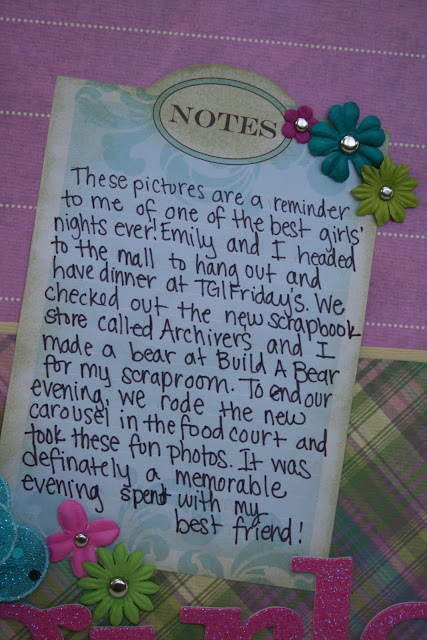 NOTES
These pictures are a reminder
to me of one of the best girls'
nights ever! Emily and I headed
to the mall to hang out and
have dinner at TGIFriday's. We
checked out the new scrapbook
store called Archivers and I
made a bear at Build A Bear
for my scraproom. To end our
evening, we rode the new
carousel in the food court and
took these fun photos. It was
definately a memorable
evening spent with my
best friend!